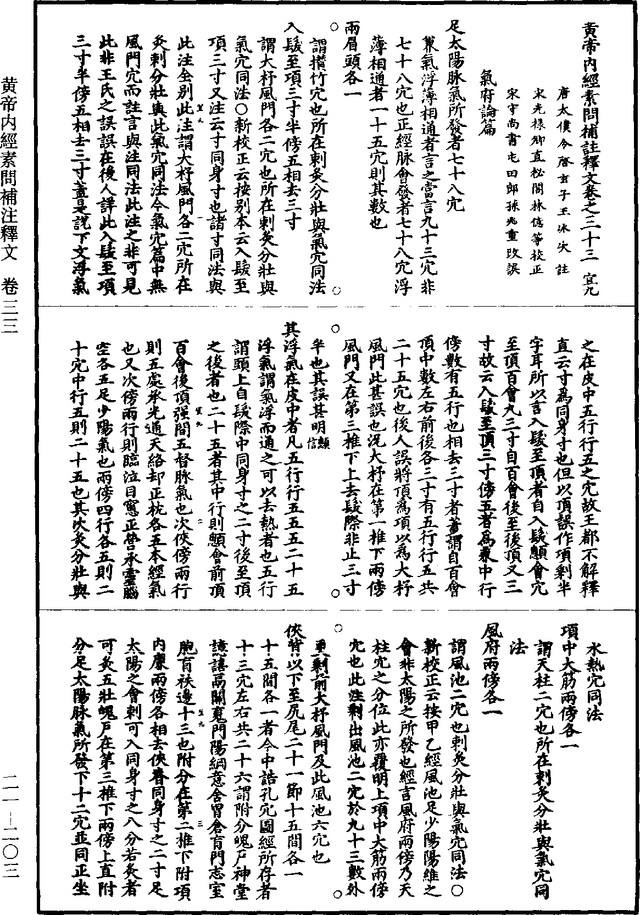 黃帝內經素問補註釋文卷之三十三 宜九
唐太僕令啓玄子王冰次註
宋光祿卿直祕閣林億等校正
宋守尚書屯田郎孫兆重改誤
氣府論篇
足太陽脉氣所發者七十八穴
兼氣浮薄相通者言之當言九十三穴非
七十八穴也正經脉會發者七十八穴浮
薄相通者一十五穴則其數也
兩眉頭各一
謂攢竹穴也所在刺灸分壯與氣穴同法
入髮至項三寸半傍五相去三寸
謂大杼風門各二穴也所在刺灸分壯與
氣穴同法○新校正云按別本云入髮至
項三寸又注云寸同身寸也諸寸同法與
此注全別此注謂大杼風門各二穴所在
灸刺分壯與此氣穴同法今氣穴篇中無
風門穴而註言與注同法此注之非可見
此非王氏之誤誤在後人詳此入髮至項
三寸半傍五相去三寸蓋是說下文浮氣
之在皮中五行行五之穴故王都不解釋
直云寸為同身寸也但以頂誤作項剩半
字耳所以言入髮至頂者自入髮顖會穴
至頂百會凡三寸自百會後至後頂又三
寸故云入髮至頂三寸傍五者為兼中行
傍數有五行也相去三寸者蓋謂自百會
頂中數左右前後各三寸有五行行五共
二十五穴也後人誤將頂為項以為大杼
風門此甚誤也況大杼在第一椎下兩傍
風門又在第二椎下上去髮際非止三寸
半也其誤甚明
其浮氣在皮中者凡五行行五五五二十五
浮氣謂氣浮而通之可以去熱者也五行
謂頭上自髮際中同身寸之二寸後至頂
之後者也二十五者其中行則顖會前頂
百會後頂強間五督脉氣也次俠傍兩行
則五處承光通天絡却玉枕各五本經氣
也又次傍兩行則臨泣目窻正營承靈腦
空各五足少陽氣也兩傍四行各五則二
十穴中行五則二十五也其次灸分壯與
水熱穴同法
項中大筋兩傍各一
謂天柱二穴也所在刺灸分壯與氣穴同
法
風府兩傍各一
謂風池二穴也刺灸分壯與氣穴同法○
新校正云按甲乙經風池足少陽陽維之
會非太陽之所發也經言風府兩傍乃天
柱穴之分位此亦覆明上項中大筋兩傍
穴也此注剩出風池二穴於九十三數外
更剩前大杼風門及此風池六穴也
俠背以下至尻尾二十一節十五間各一
十五間各一者今中誥孔穴圖經所存者
十三穴左右共二十六謂附分魄戶神堂
譩譆膈關魂門陽綱意舍胃倉肓門志室
胞肓秩邊十三也附分在第二椎下附項
內廉兩傍各相去俠脊同身寸之三寸足
太陽之會刺可入同身寸之八分若灸者
可灸五壯魄戶在第三椎下兩傍上直附
分足太陽脉氣所發下十二穴並同正坐
黃帝內經素問補注釋文 卷三三
二一－二〇三